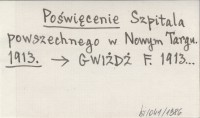 Poświęcenie Szpitala
powszechnego w Nowym Targu.
1913. → GWIŹDŹ F. 1913...